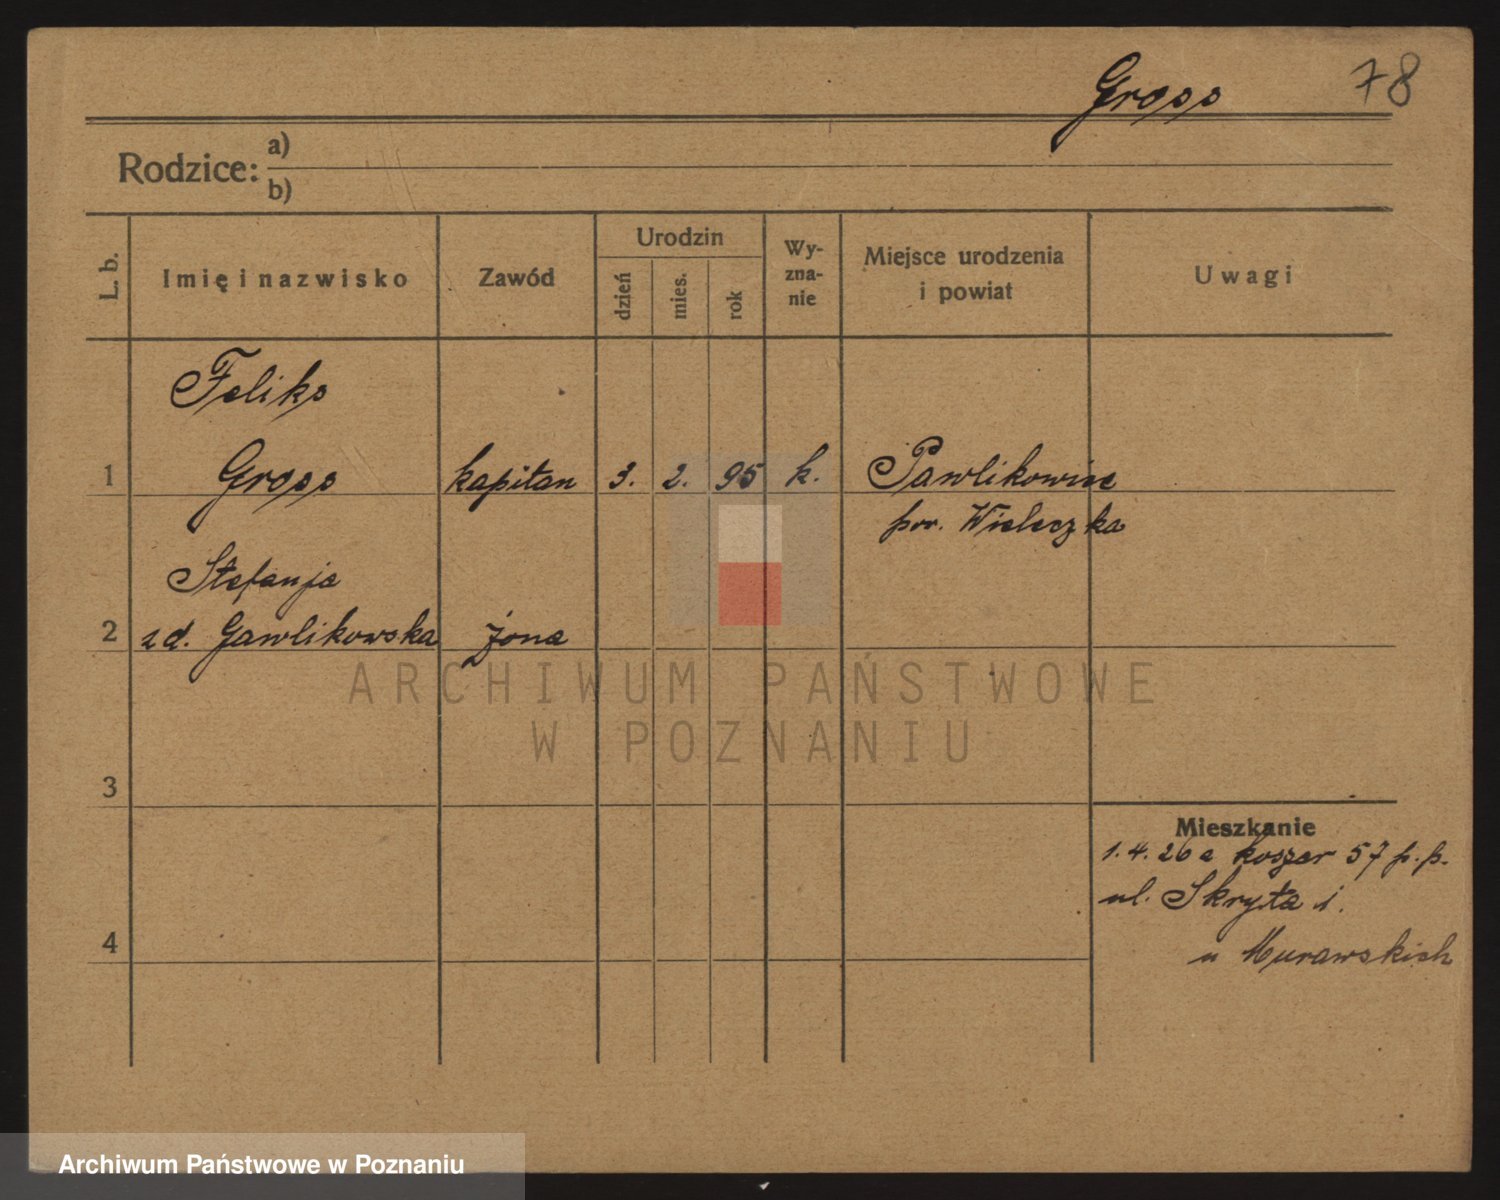 Gross 78
Rodzice: a)
b)
L. b. Imię i nazwisko Zawód Urodzin dzień mies. rok Wy-zna-nie Miejsce urodzenia i powiat Uwagi
Feliks
1 Gross kapitan 3. 2. 95 k. Pawlikowice
pow. Wieleczka
Stefanja
2 z d. Gawlikowska żona
ARCHIWUM PAŃSTWOWE
W POZNANIU
3
Mieszkanie
1. 4. 26 z koszar 57 p. p.
ul. Skryta 1.
4 u Murawskich
Archiwum Państwowe w Poznaniu